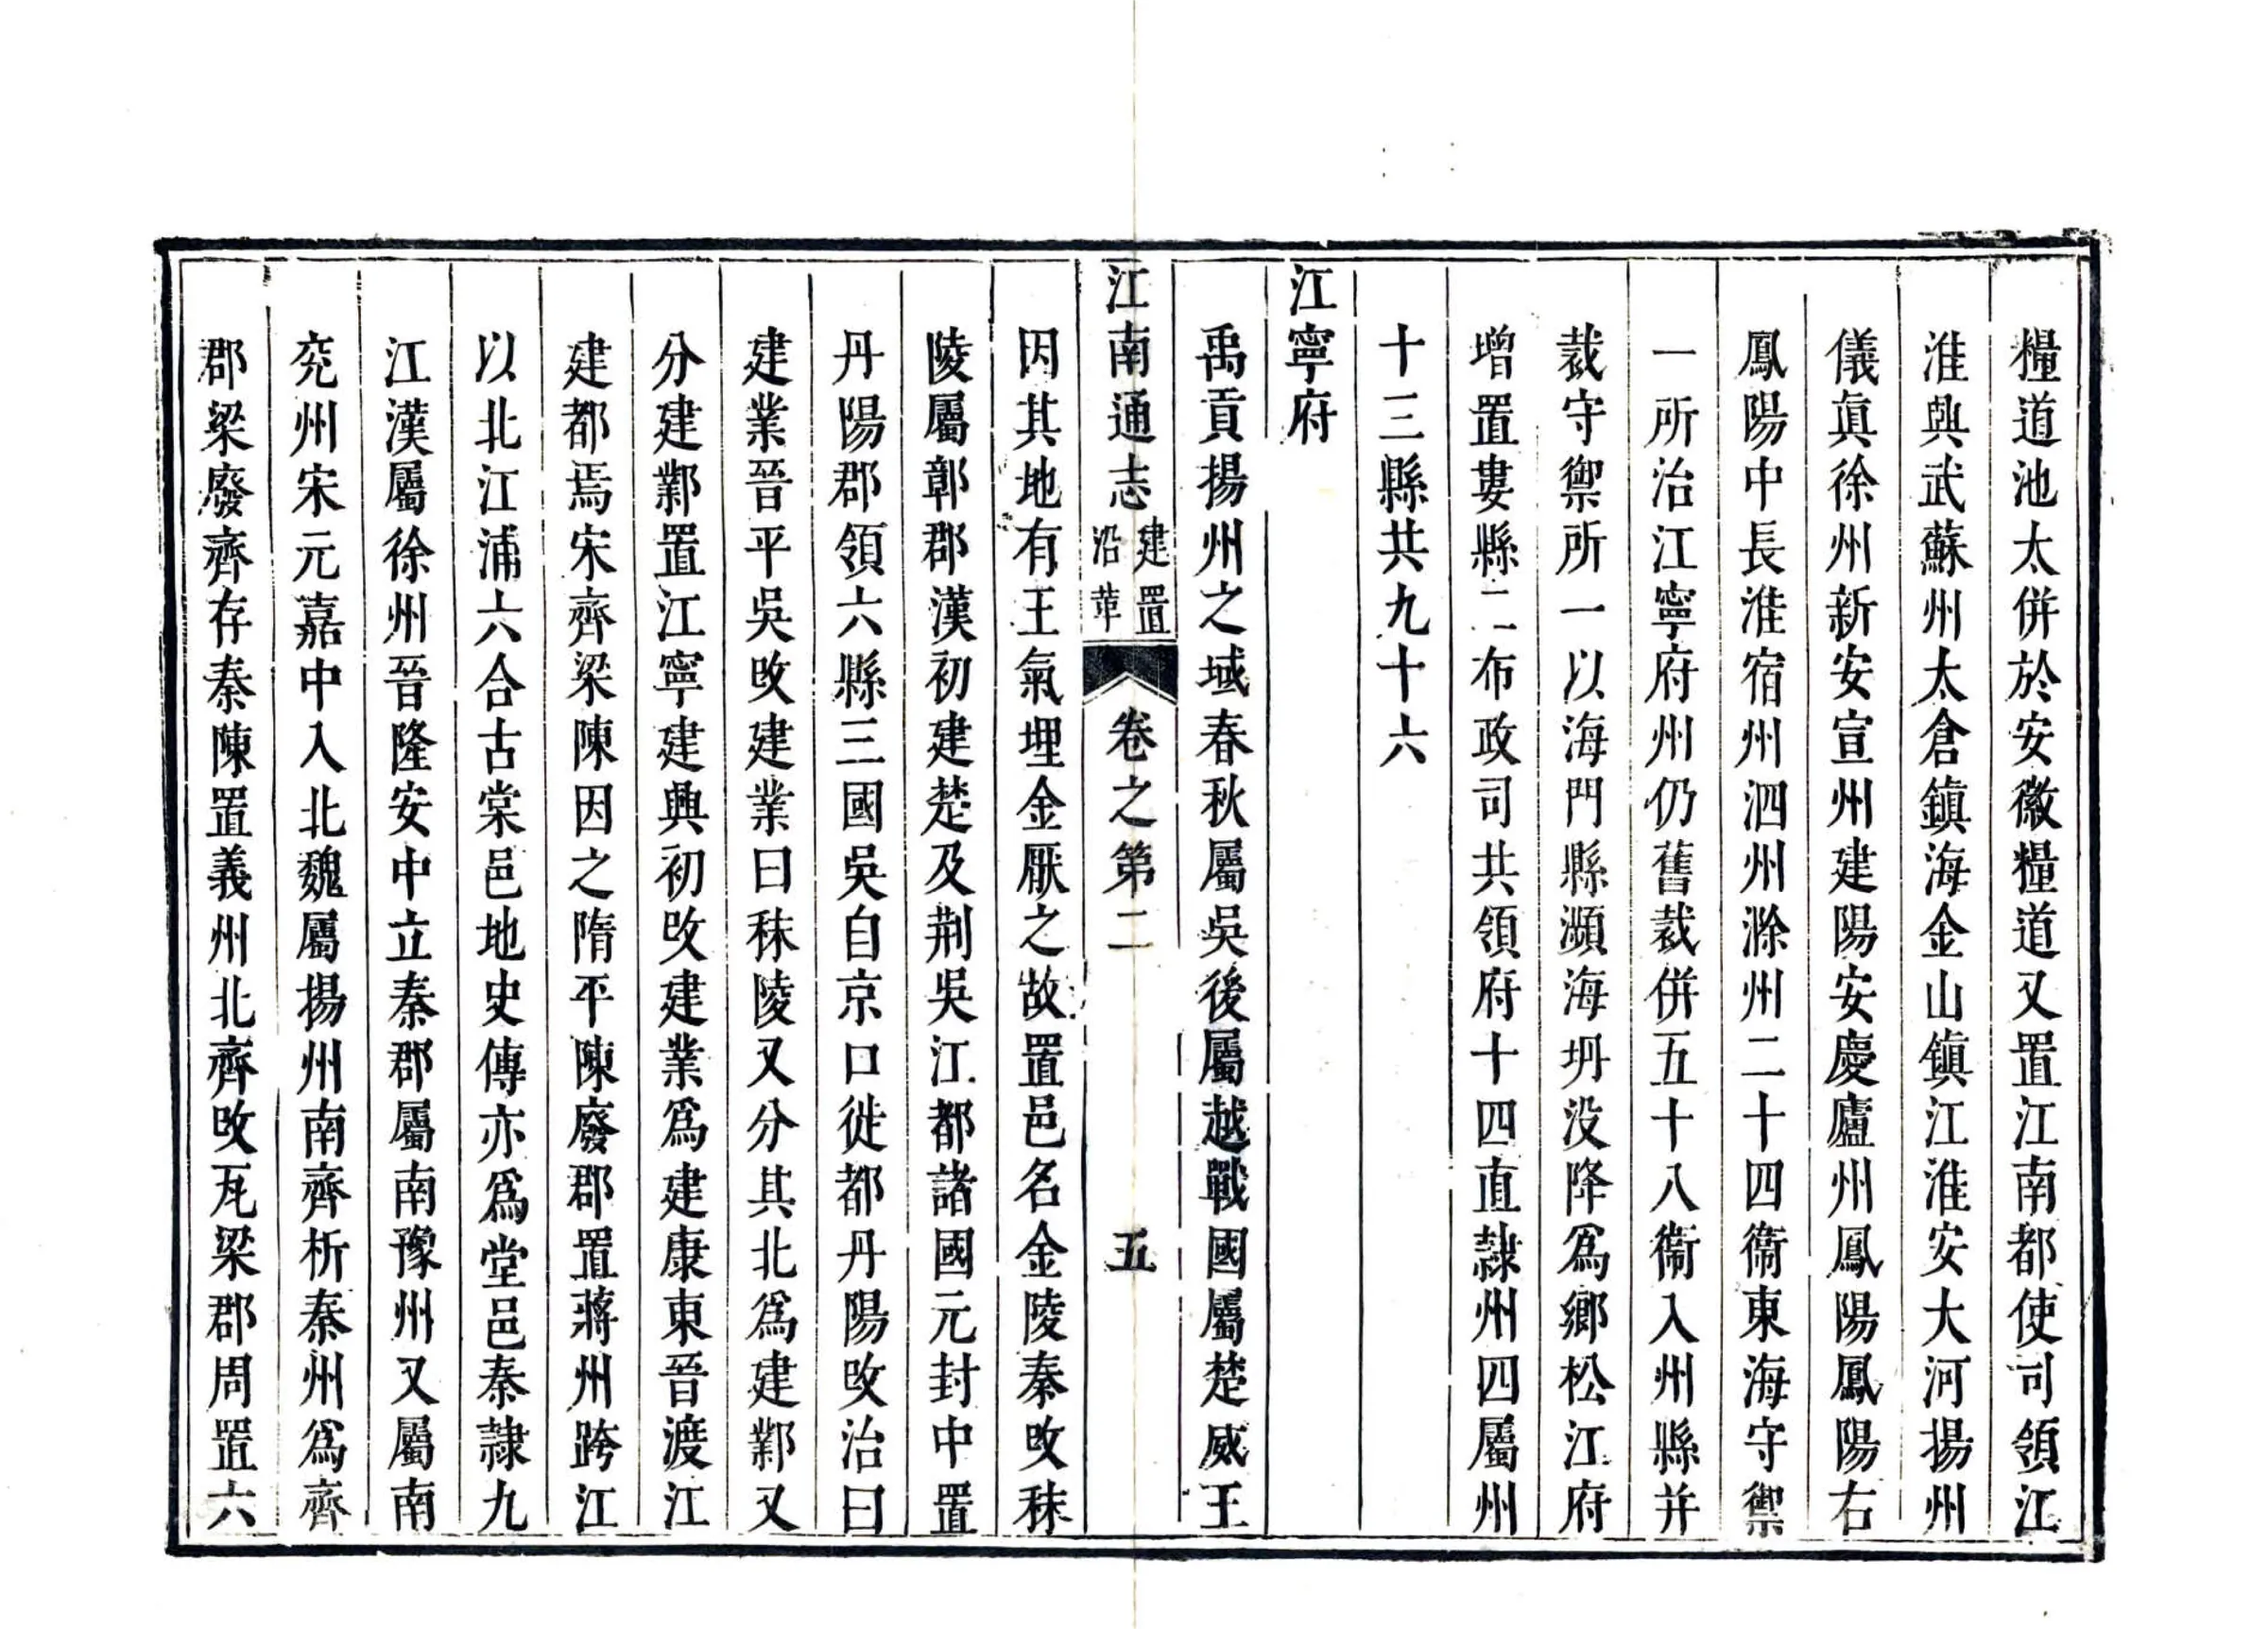 糧道池太併於安徽糧道又置江南都使司領江
淮興武蘇州太倉鎮海金山鎮江淮安大河揚州
儀眞徐州新安宣州建陽安慶廬州鳳陽鳳陽右
鳳陽中長淮宿州泗州滁州二十四衞東海守禦
一所治江寧府州仍舊裁併五十八衞入州縣并
裁守禦所一以海門縣瀕海坍没降爲鄉松江府
增置婁縣二布政司共領府十四直隷州四屬州
十三縣共九十六
江寧府
禹貢揚州之域春秋屬吳後屬越戰國屬楚威王
江南通志 建置沿革 卷之第二 五
因其地有王氣埋金厭之故置邑名金陵秦攺秣
陵屬鄣郡漢初建楚及荆吳江都諸國元封中置
丹陽郡領六縣三國吳自京口徙都丹陽攺治曰
建業晉平吳攺建業曰秣陵又分其北爲建鄴又
分建鄴置江寧建興初攺建業爲建康東晉渡江
建都焉宋齊梁陳因之隋平陳廢郡置蔣州跨江
以北江浦六合古棠邑地史傳亦爲堂邑秦隷九
江漢屬徐州晉隆安中立秦郡屬南豫州又屬南
兖州宋元嘉中入北魏屬揚州南齊析秦州爲齊
郡梁廢齊存秦陳置義州北齊攺瓦梁郡周置六